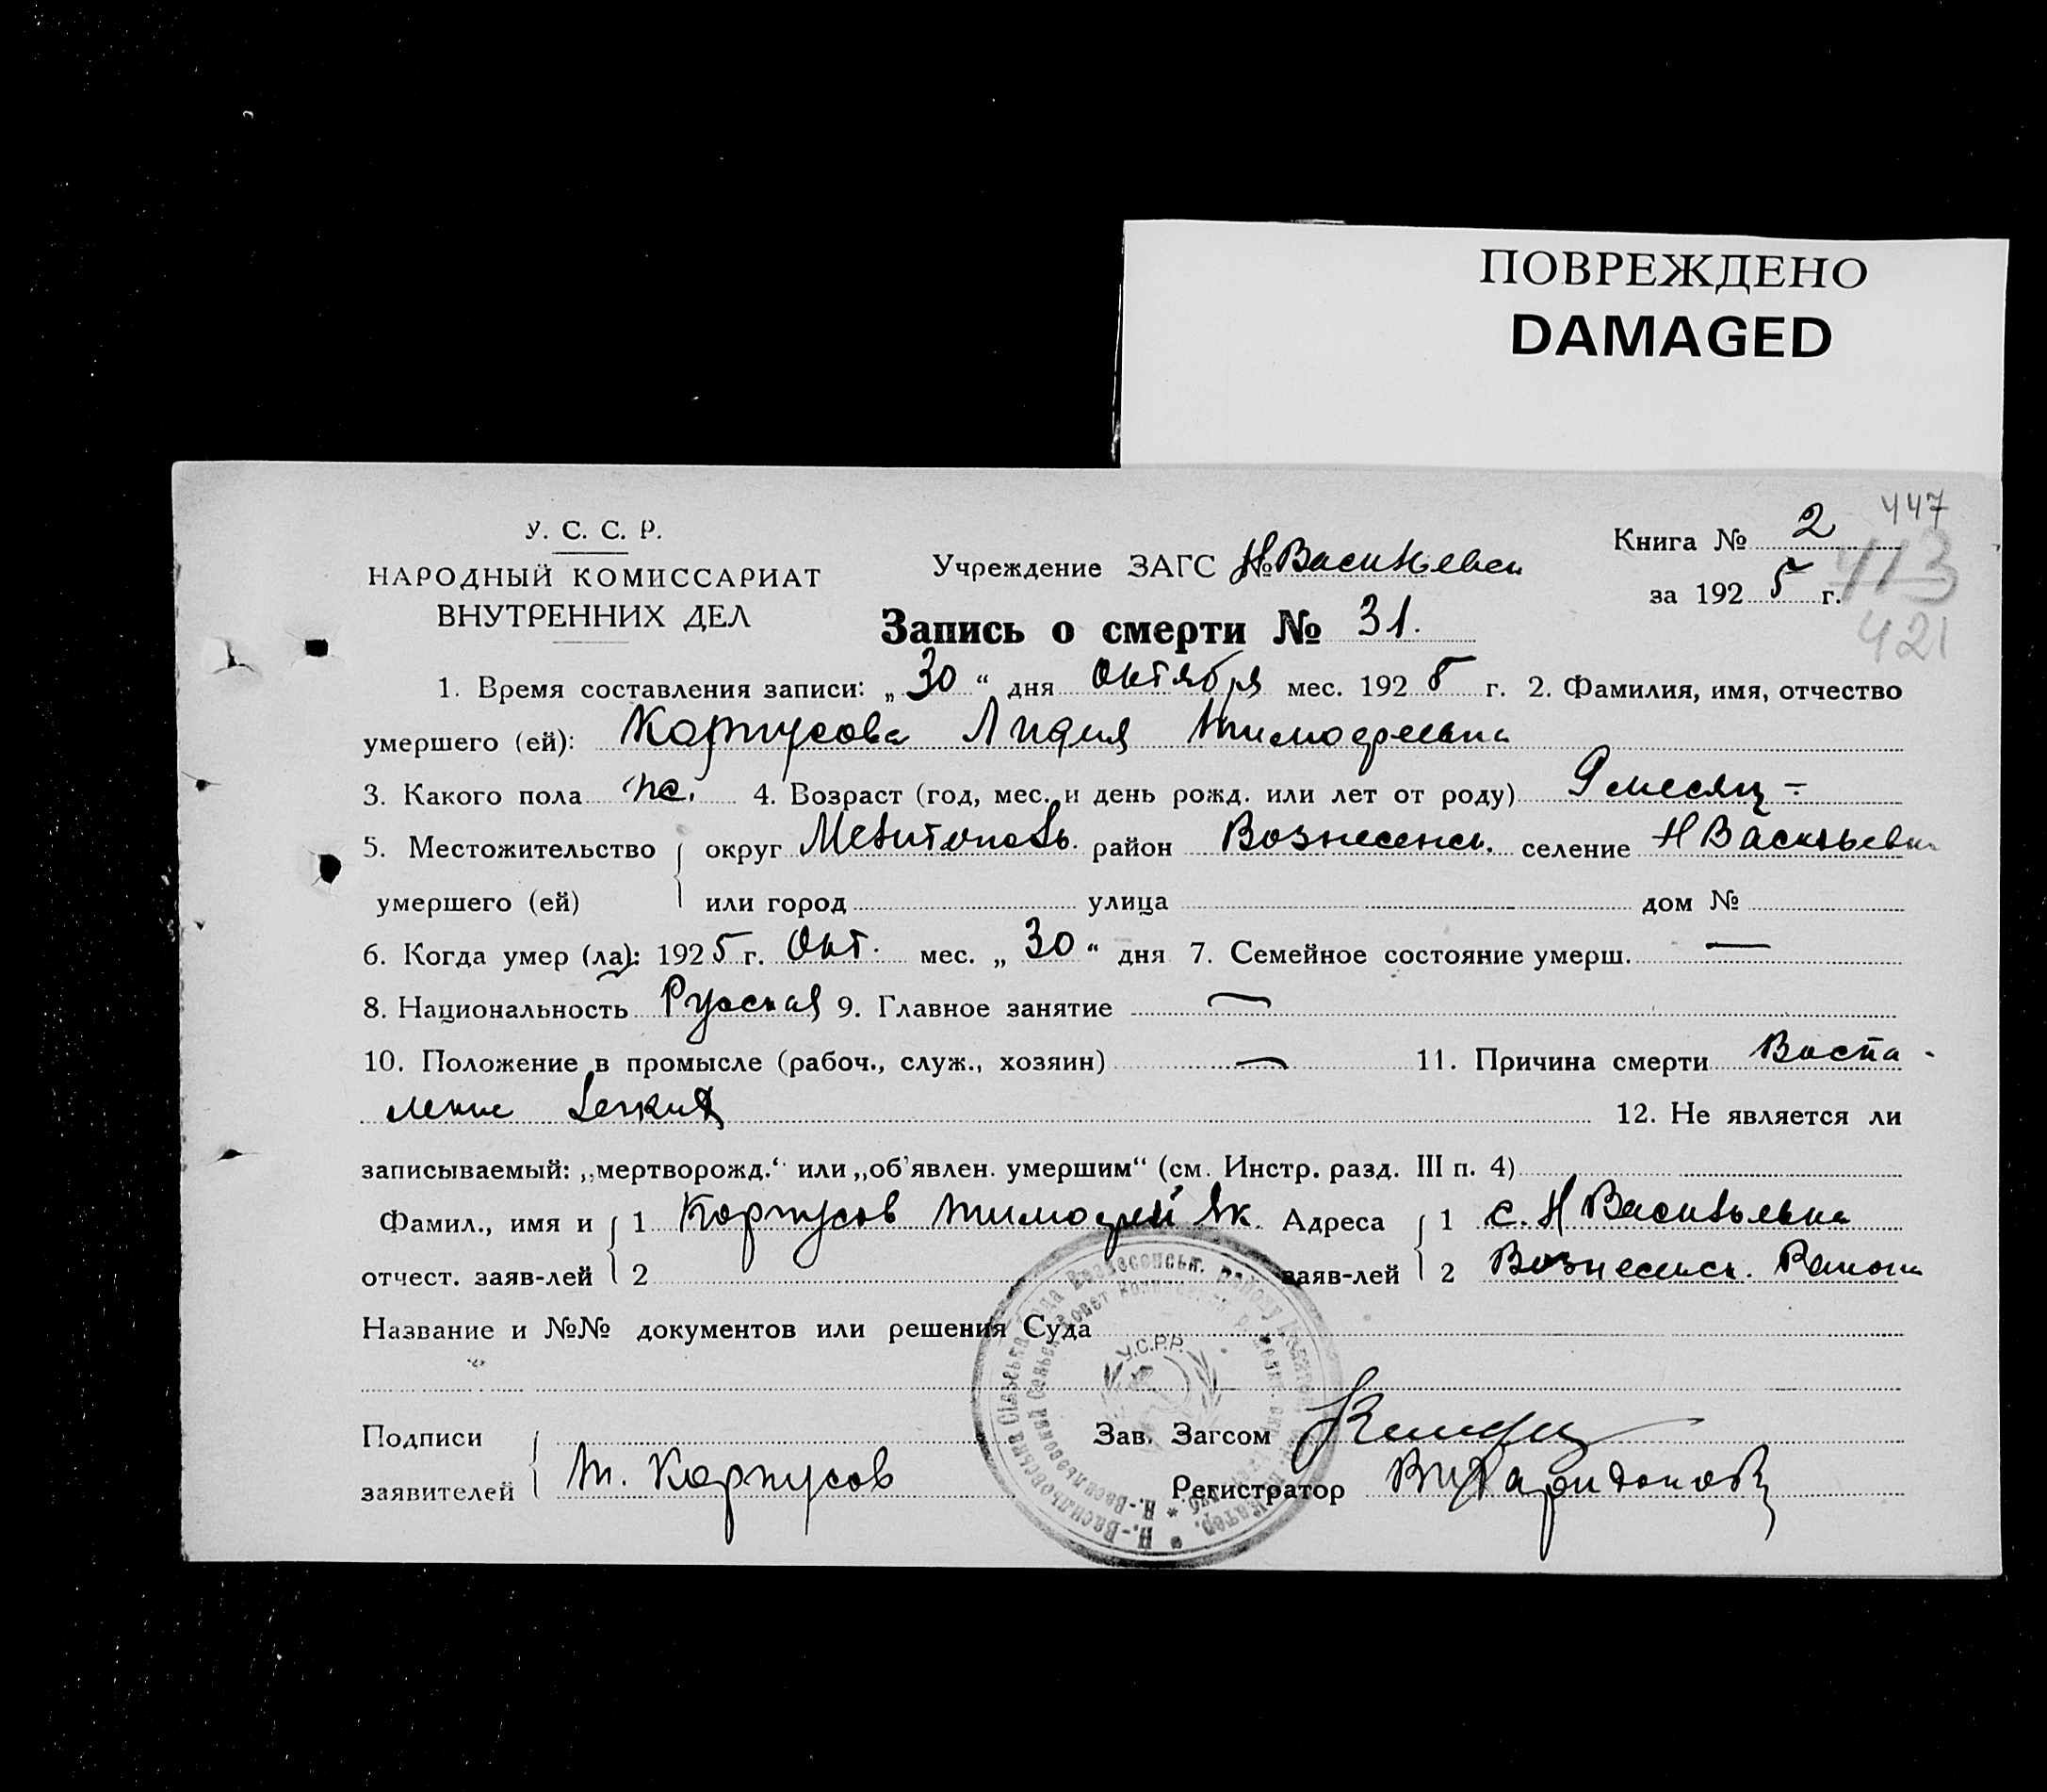 ПОВРЕЖДЕНО
DAMAGED
447
У. С. С. Р.
НАРОДНЫЙ КОМИССАРИАТ
ВНУТРЕННИХ ДЕЛ
Учреждение ЗАГС Н Васильевск
Книга № 2
413
за 1925 г.
421
Запись о смерти № 31.
1. Время составления записи: „30“ дня октября мес. 1925 г. 2. Фамилия, имя, отчество
умершего (ей): Корпусова Лидия Тимофеевна
3. Какого пола ж. 4. Возраст (год, мес. и день рожд. или лет от роду) 9 месяц -
5. Местожительство округ Мелитополь. район Вознесенск. селение Н Васильевка
умершего (ей) или город улица дом №
6. Когда умер (ла): 1925 г. Окт. мес. „30“ дня 7. Семейное состояние умерш. —
8. Национальность Русская 9. Главное занятие —
10. Положение в промысле (рабоч., служ., хозяин) — 11. Причина смерти Воспа-
ление легких 12. Не является ли
записываемый: „мертворожд.“ или „об'явлен. умершим“ (см. Инстр. разд. III п. 4)
Фамил., имя и 1 Корпусов Тимофей Як. Адреса 1 с. Н Васильевка
отчест. заяв-лей 2 заяв-лей 2 Вознесенск. Района
Название и №№ документов или решения Суда
У.С.Р.Р.
Подписи Зав. Загсом
заявителей Т. Корпусов Регистратор